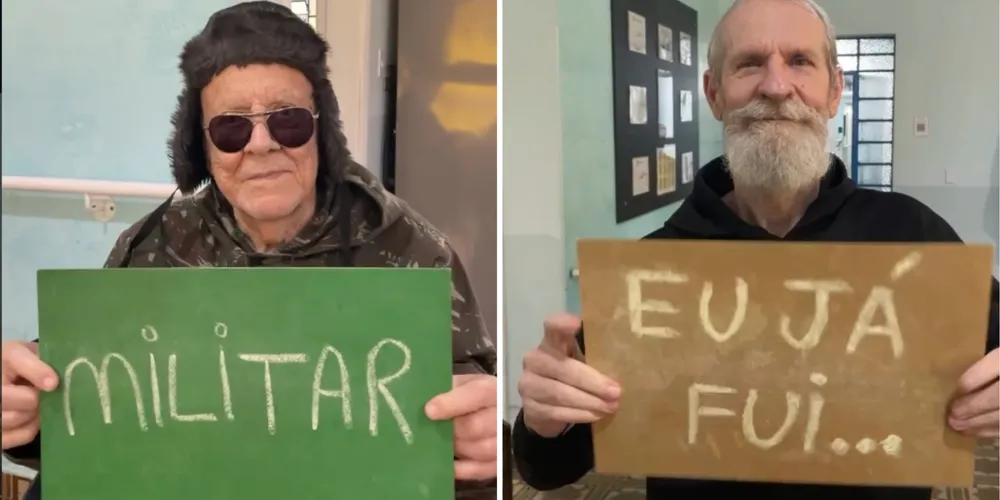 MiLiTAR
EU JÁ
FUi...